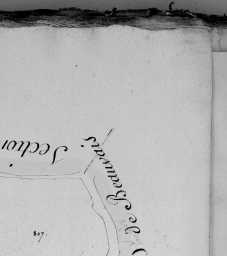 Section
de Beauvais
807.